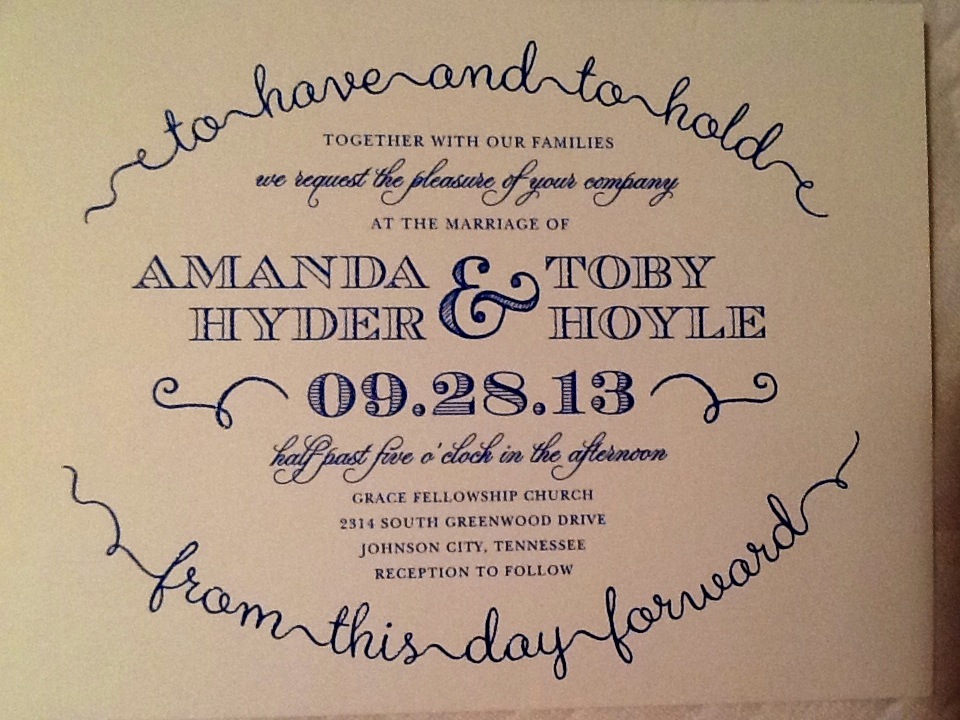 to have and to hold
TOGETHER WITH OUR FAMILIES
we request the pleasure of your company
AT THE MARRIAGE OF
AMANDA & TOBY
HYDER HOYLE
09.28.13
half past five o'clock in the afternoon
GRACE FELLOWSHIP CHURCH
2314 SOUTH GREENWOOD DRIVE
JOHNSON CITY, TENNESSEE
RECEPTION TO FOLLOW
from this day forward